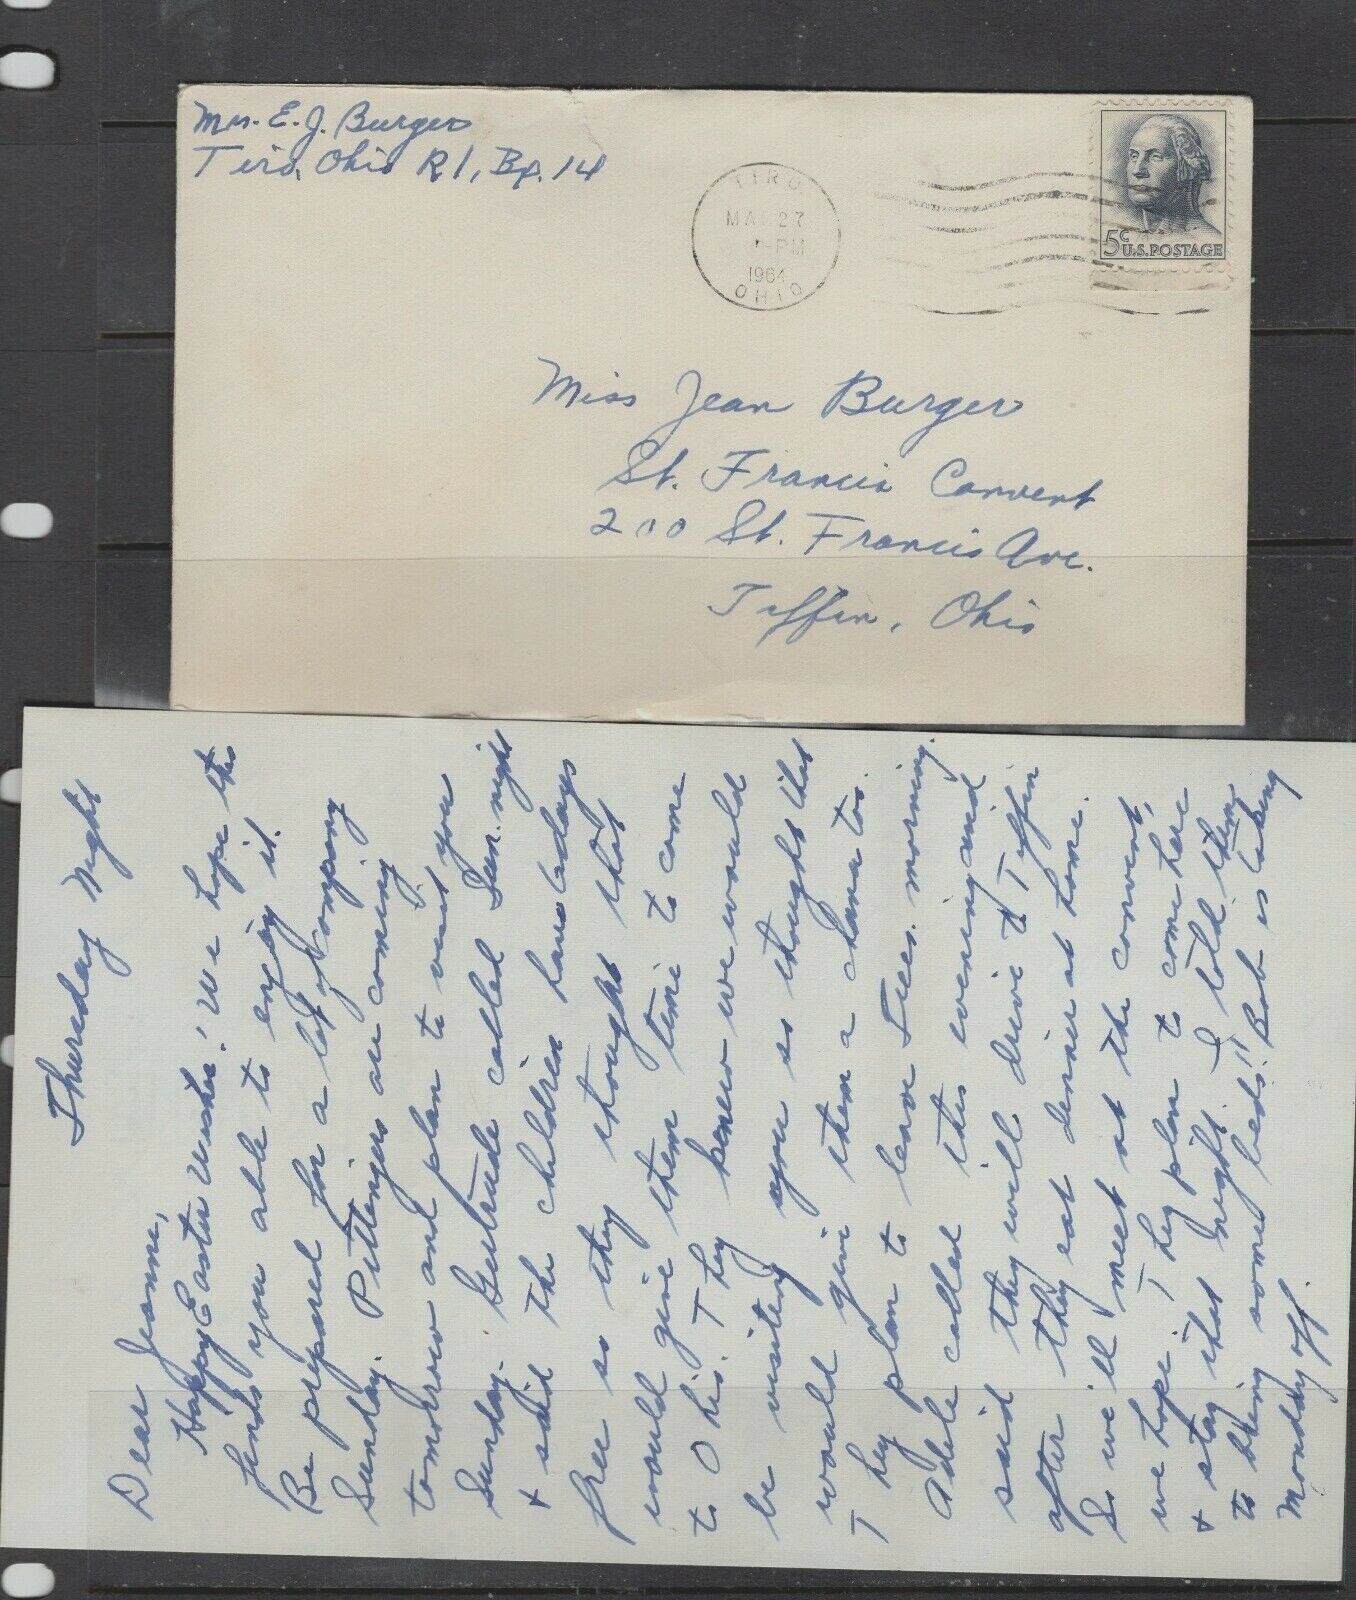 Mrs. E. J. Burger
Tiro, Ohio R 1, Bx. 14
TIRO
MA 27
PM
1964
OHIO
5c
U.S. POSTAGE
Miss Jean Burger
St. Francis Convent
200 St. Francis Ave.
Tiffin, Ohio
Thursday Night
Dear Jeanne,
Happy Easter Wishes! We hope this
finds you able to enjoy it.
Be prepared for a lot of company
Sunday. Pittengers are coming
tomorrow and plan to visit you
Sunday. Gertrude called Sun. night
& said the children have 6 days
free so they thought that
would give them time to come
to Ohio. They knew we would
be visiting you so thought that
would give them a chance too.
They plan to leave Tues. morning.
Adele called this evening and
said they will drive to Tiffin
after they eat dinner at home.
So we'll meet at the convent,
we hope. They plan to come here
& stay that night. I told them
to bring some beds!! Bob is taking
Monday off.